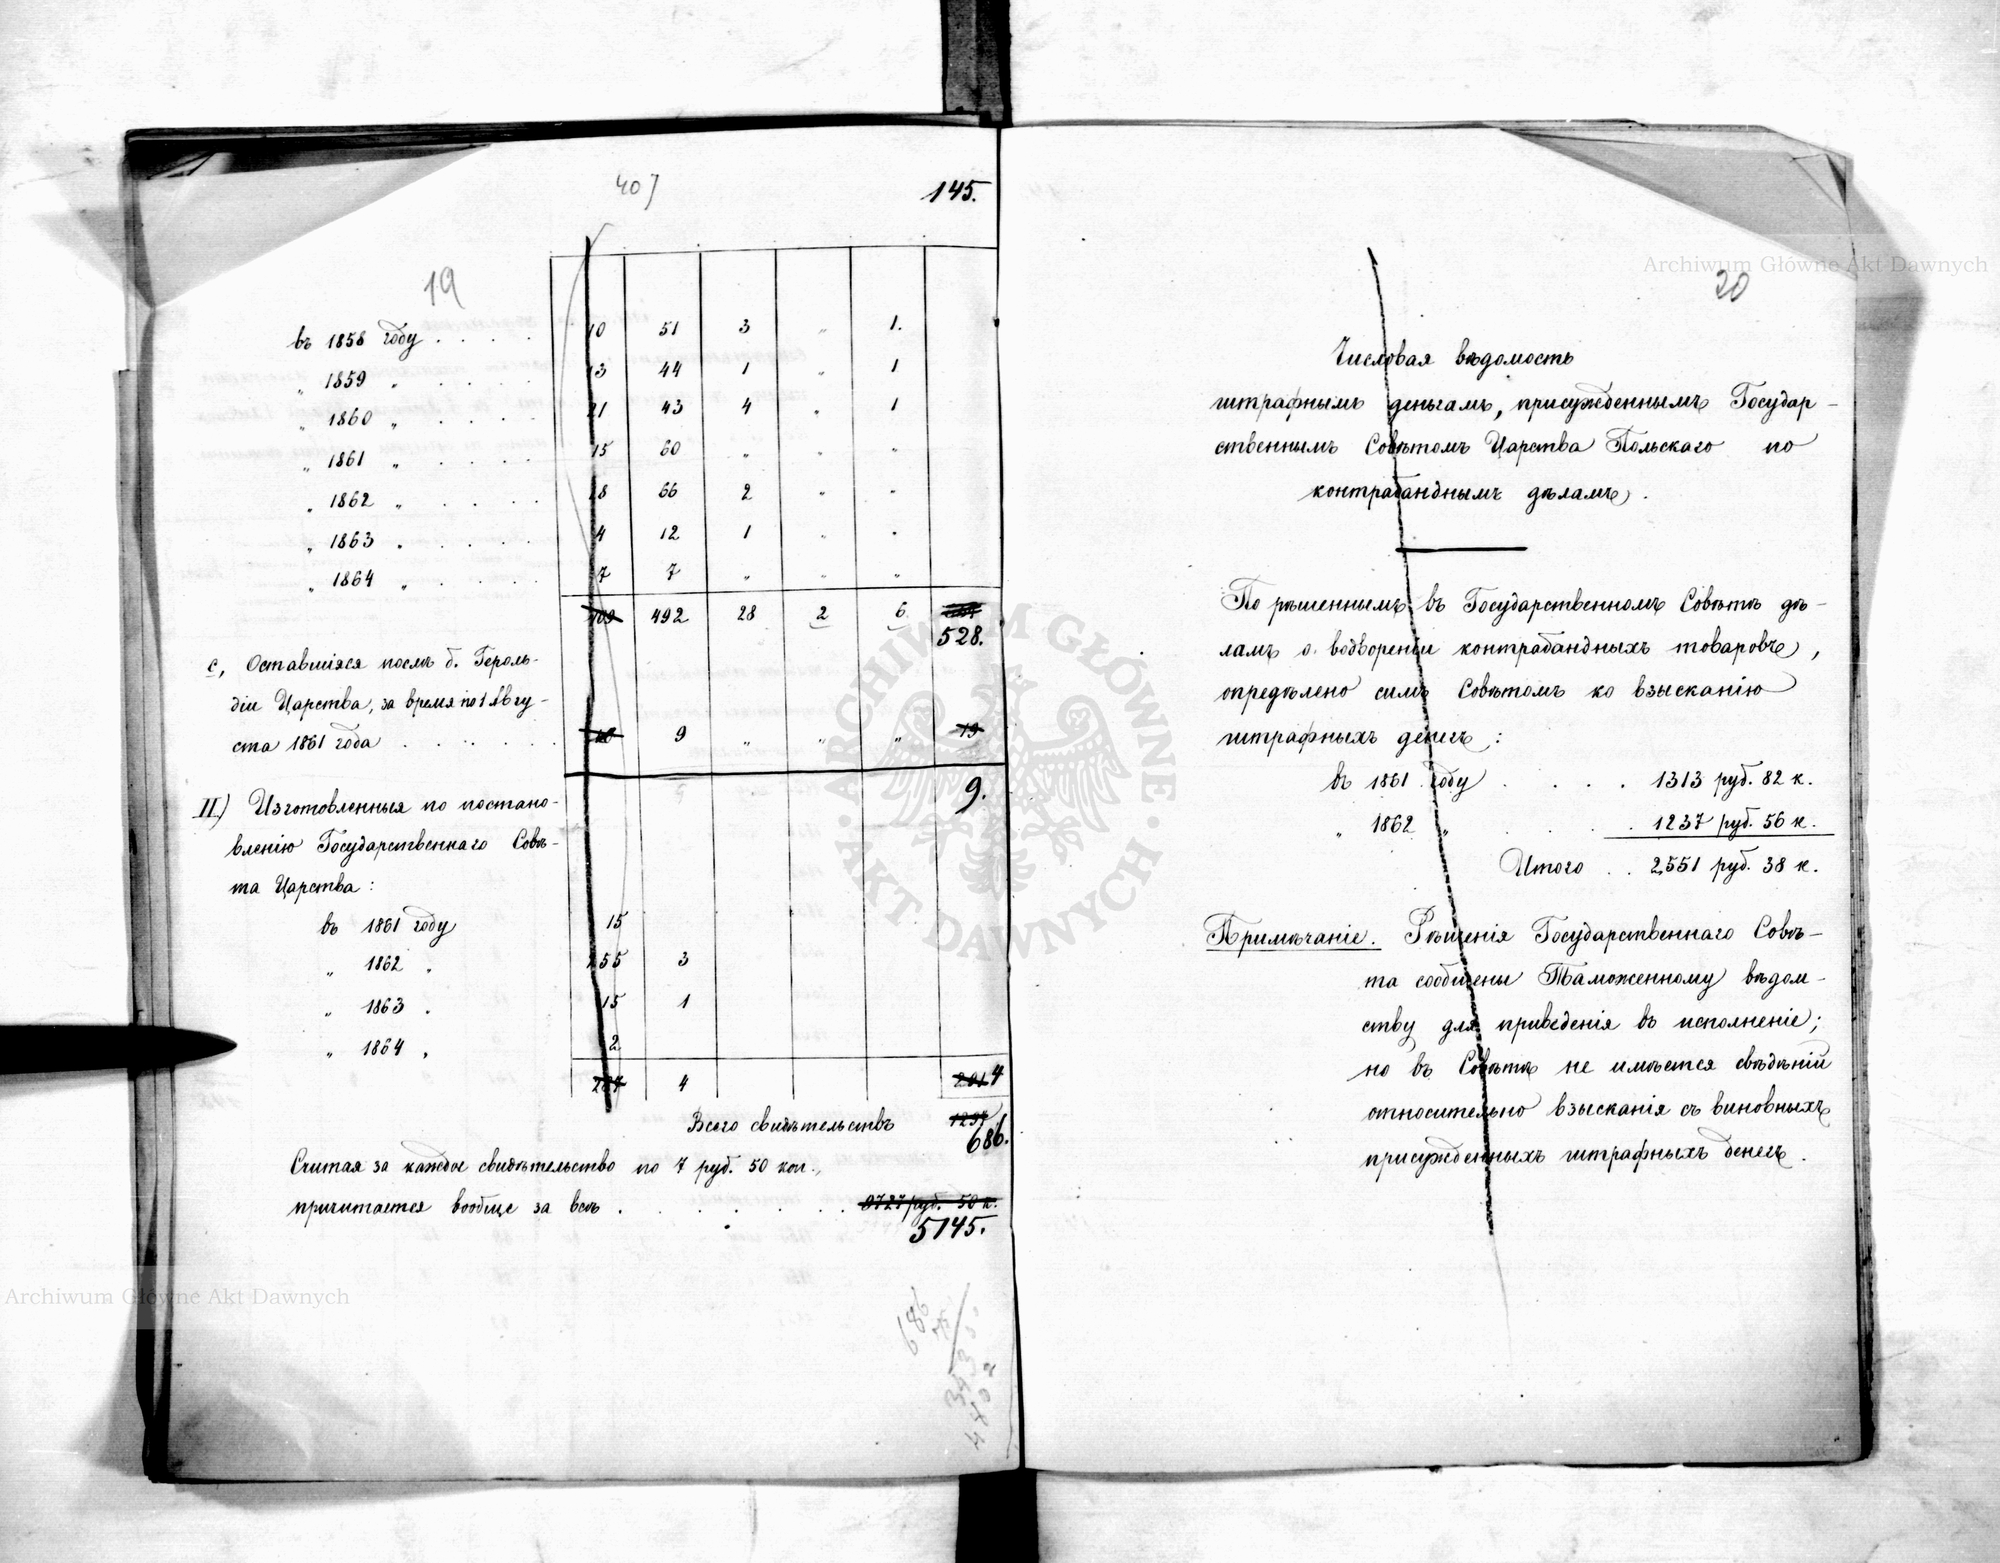 407
145.
19
въ 1858 году . . . . 10 51 3 „ 1.
„ 1859 „ . . . . 13 44 1 „ 1
„ 1860 „ . . . . 21 43 4 „ 1
„ 1861 „ . . . . 15 60 „ „ „
„ 1862 „ . . . . 18 66 2 „ „
„ 1863 „ . . . . 4 12 1 „ „
„ 1864 „ . . . . 7 7 „ „ „
109 492 28 2 6
528.
с, Оставшіяся послѣ б. Героль-
діи Царства, за время по 1 Авгу-
ста 1861 года . . . . . . 10 9 „ „ „ 19
9.
II.) Изготовленныя по постано-
вленію Государственнаго Совѣ-
та Царства:
въ 1861 году 15
„ 1862 „ 255 3
„ 1863 „ 15 1
„ 1864 „ 2
287 4 291 4
Всего свидѣтельствъ
686.
Считая за каждое свидѣтельство по 7 руб. 50 коп.,
причитается вообще за всѣ . . . . . . 9727 руб. 50 к.
5145.
686
75
3430
4802
20
Числовая вѣдомость
штрафнымъ деньгамъ, присужденнымъ Государ-
ственнымъ Совѣтомъ Царства Польскаго по
контрабанднымъ дѣламъ.
По рѣшеннымъ въ Государственномъ Совѣтѣ дѣ-
ламъ о водвореніи контрабандныхъ товаровъ,
опредѣлено симъ Совѣтомъ ко взысканію
штрафныхъ денегъ:
въ 1861 году . . . . 1313 руб. 82 к.
„ 1862 „ . . . . 1237 руб. 56 к.
Итого . . 2,551 руб. 38 к.
Примѣчаніе. Рѣшенія Государственнаго Совѣ-
та сообщены Таможенному вѣдом-
ству для приведенія въ исполненіе;
но въ Совѣтѣ не имѣется свѣдѣній
относительно взысканія съ виновныхъ
присужденныхъ штрафныхъ денегъ.
ARCHIWUM GŁÓWNE · AKT DAWNYCH ·
Archiwum Główne Akt Dawnych
Archiwum Główne Akt Dawnych